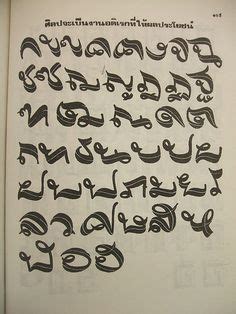 ศิลปจะเป็นงานอดิเรกที่ให้ผลประโยชน์
ก ข ฃ ค ง จ ฉ
ช ซ ฌ ญ ฎ ฏ ฐ
ฑ ฒ ณ ด ต
ถ ท ธ น บ ป
ผ ฝ พ ฟ ภ ม ย ร
ล ว ศ ษ ส ห
ฬ อ ฮ